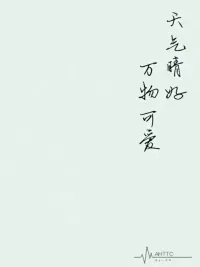 天气晴好
万物可爱
AHTTC